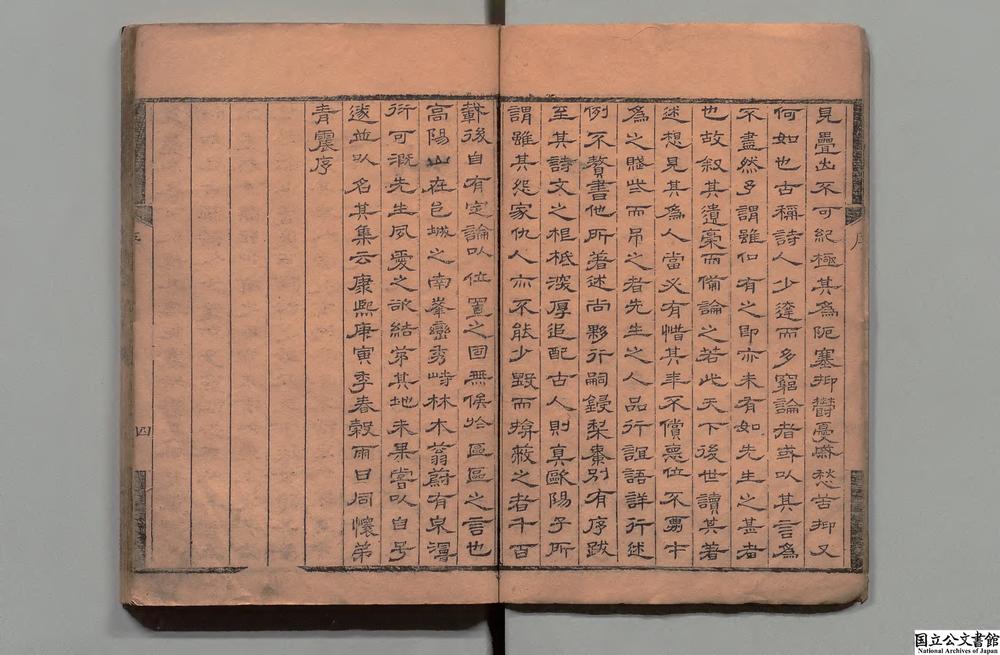 見疊出不可紀極其為阨塞抑鬱憂廢愁苦抑又
何如也古稱詩人少達而多窮論者或以其言為
不盡然予謂雖似有之即亦未有如先生之甚者
也故叙其遺稾而備論之若此天下後世讀其著
述想見其為人當必有惜其年不償悳位不
為之賦些而吊之者先生之人品行誼語詳行述
例不贅書他所著述尚夥行嗣鋟棃棗別有序跋
至其詩文之根柢深厚追配古人則真歐陽子所
謂雖其怨家仇人亦不能少毀而揜蔽之者千百
載後自有定論以位置之固無俟於區區之言也
高陽山在邑城之南峯巒秀峙林木蓊蔚有泉灣
衍可溉先生夙愛之欲結茅其地未果嘗以自号
遂並以名其集云康熙庚寅季春穀雨日同懷弟
青震序
序
四
国立公文書館
National Archives of Japan